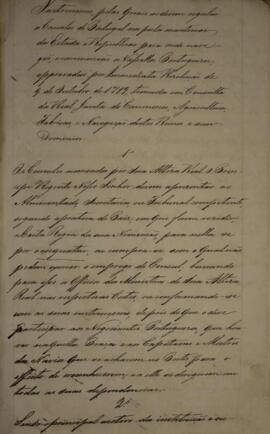 Instrucçoens, pelas Quaes se devem regular
os Consules de Portugal nos portos maritimos
dos Estados e Republicas para onde nave-
gão, e commerceão os Vassallos Portuguezes,
approvadas por immediata Resolução de
9 de Outubro de 1789, tomada em Consulta
da Real Junta do Commercio, Agricultura,
Fabricas e Navegação destes Reinos e seus
Dominios
1º
Os Consules nomeados por Sua Alteza Real o Prin-
cipe Regente Nosso Senhor devem apresentar ao
Almirantado, Secretaria ou Tribunal competente,
segundo a pratica do Paiz, em que forem residir
a Carta Patente da sua Nomeação, para nella se
por o exequatur, ou cumpra-se com o Qual não
podem exercer o emprego de Consul, buscando
para isso os Officios dos Ministros de Sua Alteza
Real nas respectivas Cortes, e conformando-se
com as suas instrucçoens depois do que o deve
participar aos Negociantes Portuguezes, que hou-
ver naquella Praça e aos Capitaens e Mestres
dos Navios que se acharem no Porto para o
effeito de reconhecerem e a elle se dirigirem em
todas as suas dependencias.
2º
Sendo o principal motivo da instituição dos